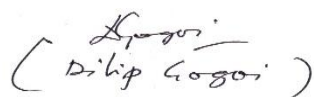 DGogoi
( Dilip Gogoi )